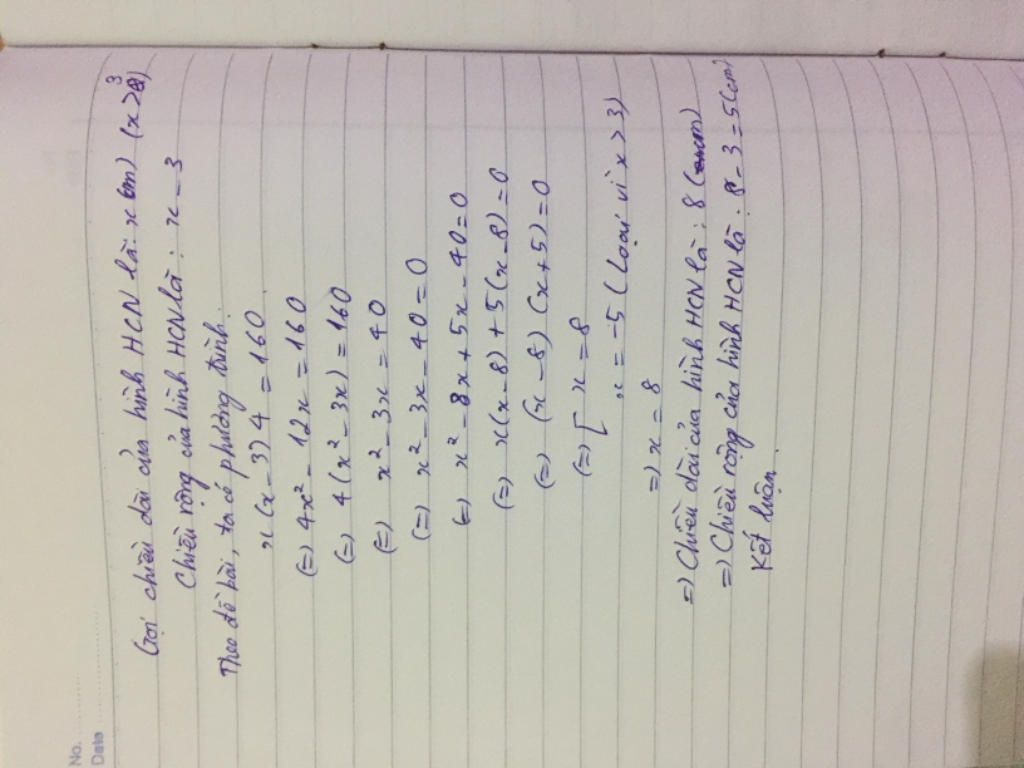 No.
Date
Gọi chiều dài của hình HCN là: x (cm) (x > 3)
Chiều rộng của hình HCN là : x - 3
Theo đề bài, ta có phương trình:
x(x-3)4 = 160
(=) 4x² - 12x = 160
(=) 4(x² - 3x) = 160
(=) x² - 3x = 40
(=) x² - 3x - 40 = 0
(=) x² - 8x + 5x - 40 = 0
(=) x(x-8) + 5(x-8) = 0
(=) (x-8)(x+5) = 0
(=) [ x = 8
x = -5 (loại vì x > 3)
=) x = 8
=) Chiều dài của hình HCN là : 8 (cm)
=) Chiều rộng của hình HCN là : 8 - 3 = 5 (cm)
Kết luận.